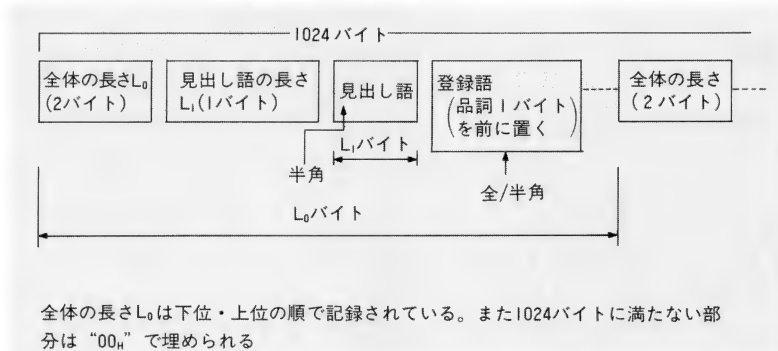 1024バイト
全体の長さL₀
(2バイト)
見出し語の長さ
L₁(1バイト)
見出し語
登録語
(品詞1バイト
を前に置く)
全体の長さ
(2バイト)
L₁バイト
半角
全/半角
L₀バイト
全体の長さL₀は下位・上位の順で記録されている。また1024バイトに満たない部
分は“00H”で埋められる